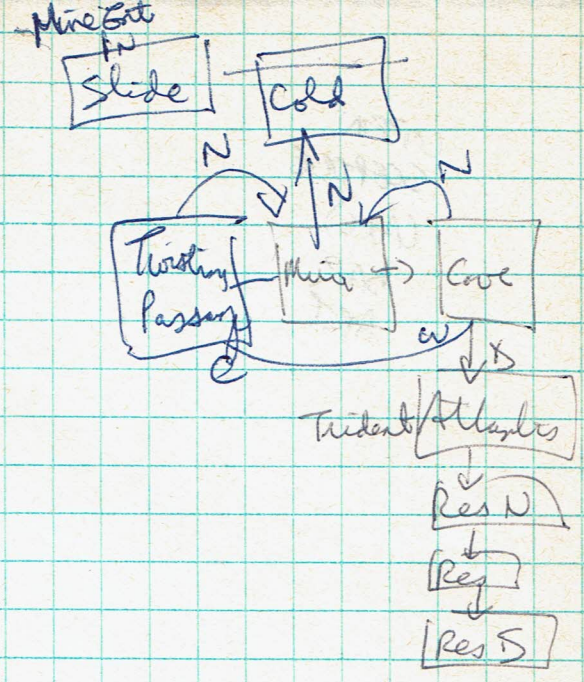 Mine Ent
IN
Slide
Cold
N
N
N
Twisting
Passag
Mirr
Cave
W
e
D
Trident
Atlantis
Res N
Res
Res S